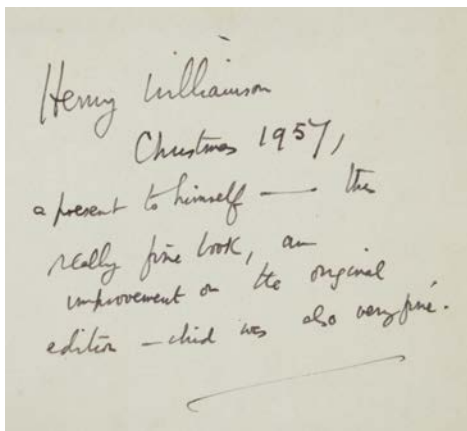 Henry Williamson
Christmas 1957,
a present to himself — this
really fine book, an
improvement on the original
edition — which was also very fine.